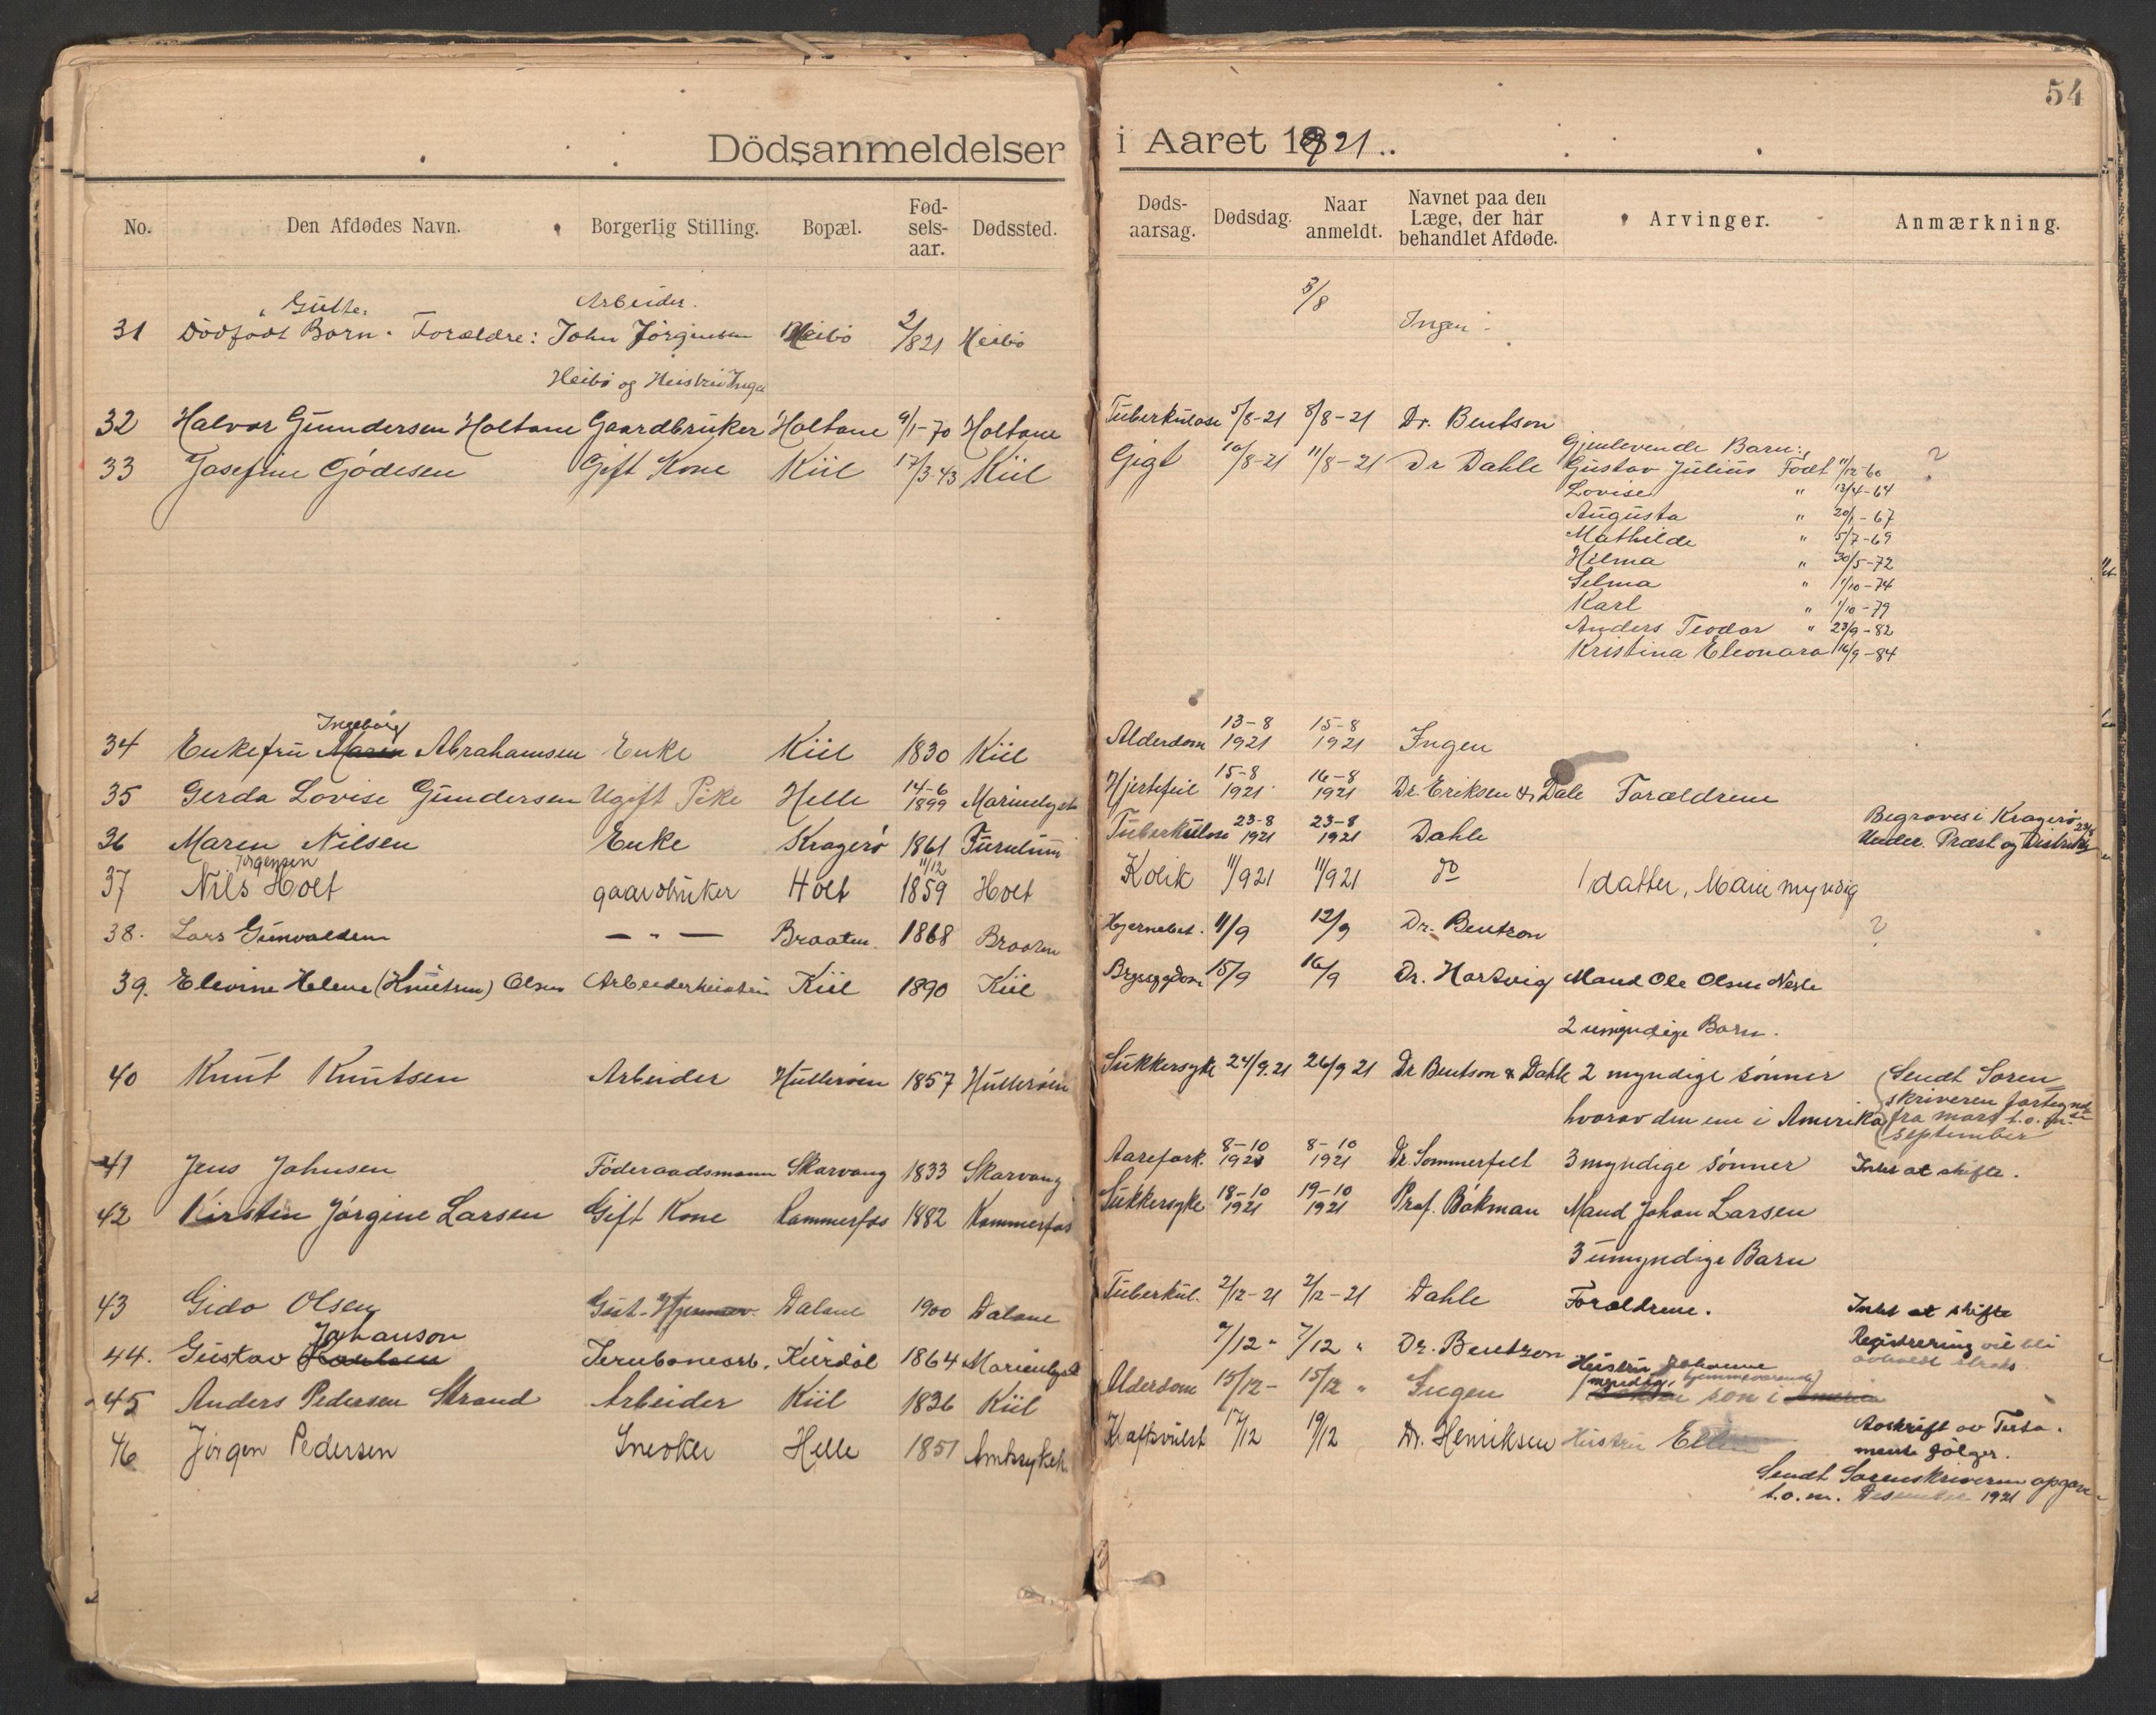 54
Dödsanmeldelser i Aaret 1921..
No. Den Afdødes Navn. Borgerlig Stilling. Bopæl. Fød-sels-aar. Dødssted. Døds-aarsag. Dødsdag. Naar anmeldt. Navnet paa den Læge, der har behandlet Afdøde. Arvinger. Anmærkning.
Gutte. Arbeider. 3/8
31 Dödfödt Barn. Forældre: John Jörginsen Heibö 2/8 21 Heibö Ingen
Heibö og Heistru Inga
32 Halvor Gundersen Holtane Gaardbruker Holtane 9/1-70 Holtane Tuberkulose 5/8-21 8/8-21 Dr. Bentson
33 Josefine Gjödesen Gift Kone Kiil 17/3-43 Kiil Gigt 10/8-21 11/8-21 Dr Dahle Gjenlevende Barn: ?
Gustav Julius Födt 11/12-60
Lovise " 13/4-64
Augusta " 20/1-67
Mathilde " 5/7-69
Hilma " 30/5-72
Selma " 1/10-74
Karl " 1/10-79
Anders Teodor " 23/9-82
Kristina Eleonora 16/9-84
Ingeborg
34 Enkefru Maren Abrahamsen Enke Kiil 1830 Kiil Alderdom 13-8 1921 15-8 1921 Ingen
35 Gerda Lovise Gundersen Ugift Pike Helle 14-6 1899 Marienlyst Hjertefeil 15-8 1921 16-8 1921 Dr. Eriksen & Dale Forældrene
36 Maren Nilsen Enke Kragerö 1861 Furulund Tuberkulose 23-8 1921 23-8 1921 Dahle Begraves i Kragerö 27/8
Under. Præst og Distrikts
Jörgensen
37 Nils Holt gaardbruker Holt 11/12 1859 Holt Kolik 11/9 21 11/9 21 do 1 datter, Marie myndig
38. Lars Gunvaldsen — " — Braaten 1868 Braaten Hjernebet. 11/9 12/9 Dr. Bentzon ?
39. Elevine Helene (Knutsen) Olsen Arbeiderheistru Kiil 1890 Kiil Brystsygdom 15/9 16/9 Dr. Hartvig Mand Ole Olsen Nesle
2 umyndige Barn.
40 Knut Knutsen Arbeider Hulleröien 1857 Hulleröien Sukkersyke 24/9.21 26/9 21 Dr Bentson & Dahle 2 myndige sönner
hvorav den ene i Amerika
Sendt Soren
skriveren fortegnelse
fra mars t.o.m.
september
41 Jens Johnsen Föderaadsmann Skarvang 1833 Skarvang Aarefork. 8-10 1921 8-10 1921 Dr. Sommerfelt 3 myndige sönner Intet at skifte.
42 Kirsten Jörgine Larsen Gift Kone Kammerfos 1882 Kammerfos Sukkersyke 18-10 1921 19-10 1921 Prof. Bökman Mand Johan Larsen
3 umyndige Barn
43 Gida Olsen Gut. Hjemmev. Dalane 1900 Dalane Tuberkul. 2/12-21 2/12-21 Dahle Forældrene. Intet at skifte
Johanson
44. Gustav Karlsen Jernbanearb. Kurdöl 1864 Marienlyst 7/12 " 7/12 " Dr. Bentzon Registrering vil bli
avholdt straks.
Heistru Johanne
myndig, hjemmeværende
45 Anders Pedersen Strand Arbeider Kiil 1836 Kiil Alderdom 13/12- 15/12 " Ingen sön i
46 Jörgen Pedersen Snedker Helle 1851 Amtssykeh. Kraftsvulst 17/12 19/12 Dr. Henriksen Heistru Avskrift av Testa-
mente fölger.
Sendt Sorenskriveren opgave
t.o.m. Desember 1921